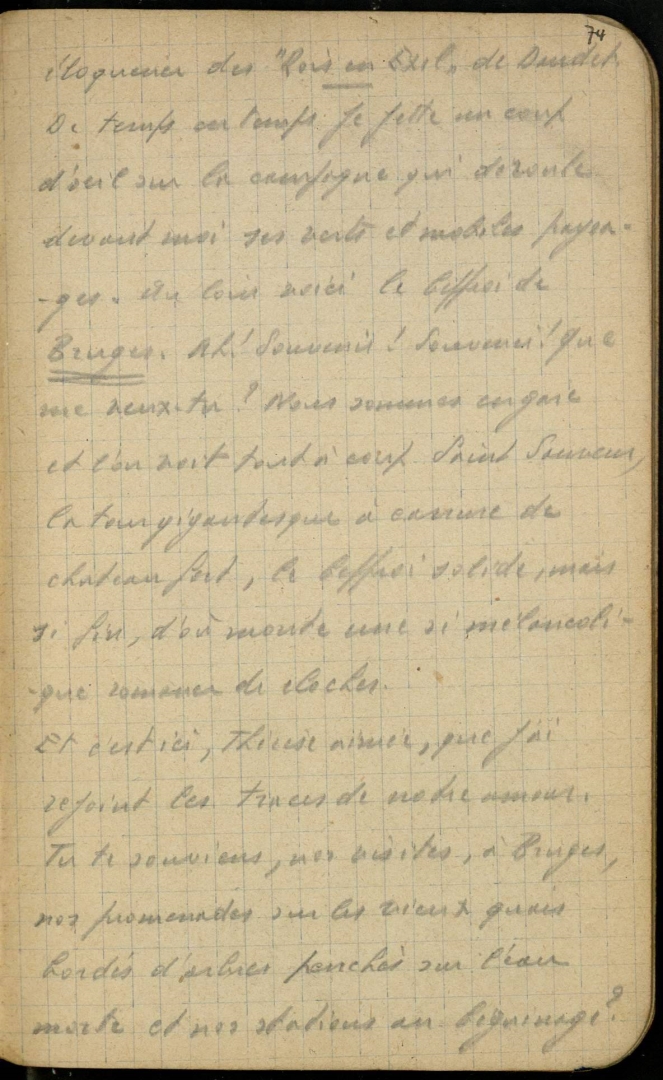 74
éloquence des "Rois en Exil" de Daudet.
De temps en temps je jette un coup
d'œil sur la campagne qui déroule
devant moi ses verts et mobiles paysa-
-ges. Au loin voici le beffroi de
Bruges. Ah! Souvenir! Souvenir! que
me veux-tu? Nous sommes en gare
et l'on voit tout à coup Saint Sauveur,
la tour gigantesque à carrure de
chateau fort, le beffroi solide, mais
si fin, d'où monte une si mélancoli-
-que romance de cloches.
Et c'est ici, Thérèse aimée, que j'ai
rejoint les traces de notre amour.
Tu te souviens, nos visites, à Bruges,
nos promenades sur les vieux quais
bordés d'arbres penchés sur l'eau
morte et nos stations au béguinage?